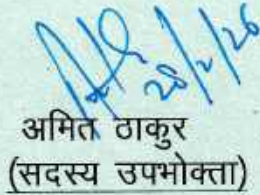 20/2/26
अमित ठाकुर
(सदस्य उपभोक्ता)